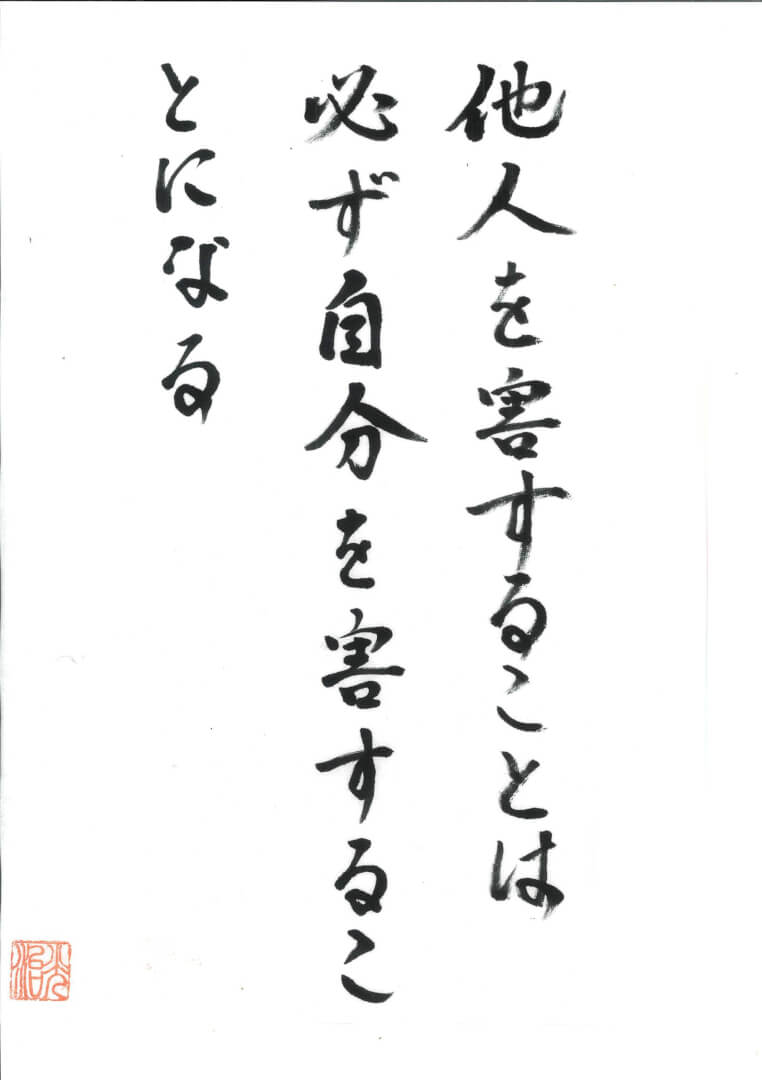 他人を害することは
必ず自分を害するこ
とになる